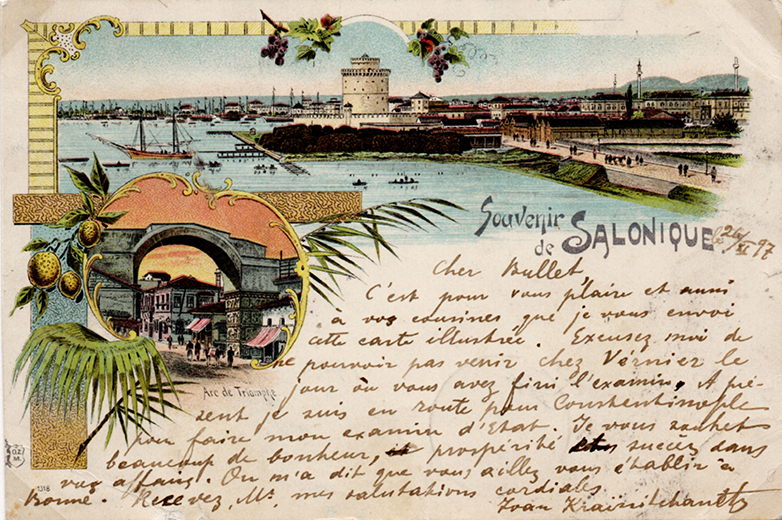 Souvenir
de SALONIQUE
le 26/XI 97
Arc de Triomphe
Cher Bullet,
C'est pour vous plaire et aussi
à vos cousines que je vous envoi
cette carte illustrée. Excusez moi de
ne pouvoir pas venir chez Vernier le
jour où vous avez fini l'examin. A pré-
sent je suis en route pour Constentinople
pour faire mon examin d'Etat. Je vous souhets
beaucoup de bonheur, prospérité succès dans
vos affairs. On m'a dit que vous aillez vous établir à
Bonne. Recevez, Mr. mes salutations cordiales
Ivan
1318